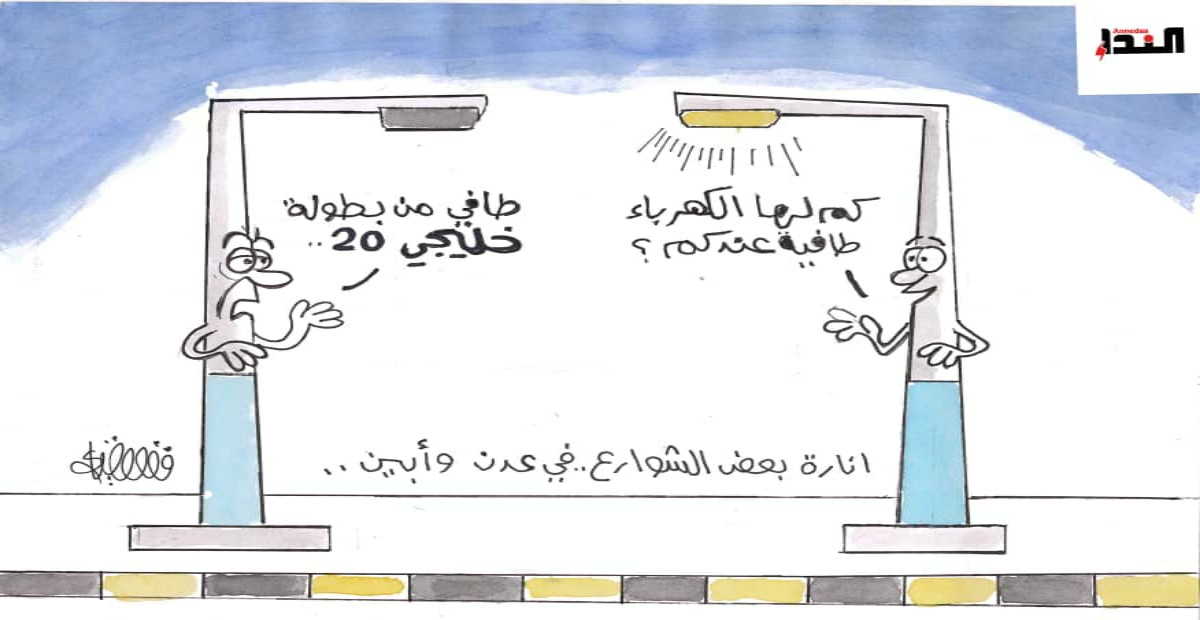 Annedaa
النداء
كم لها الكهرباء
طافية عندكم ؟
طافي من بطولة
خليجي 20 ..
انارة بعض الشوارع .. في عدن وأبين ..